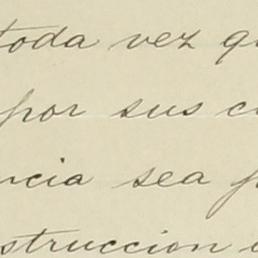 toda vez qu
por sus c
ncia sea p
struccion